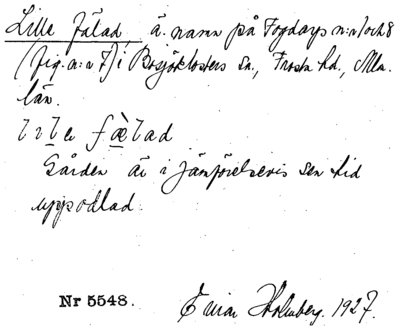 Lille fälad, ä. namn på Fogdarps n:r 1 och 8
(fig. a: n 7) i Bosjöklosters sn., Frosta hd., Mlm.
län.
lıle fæ̀lad
Gården är i jämförelsevis sen tid
uppodlad.
Nr 5548. Einar Holmberg. 1927.